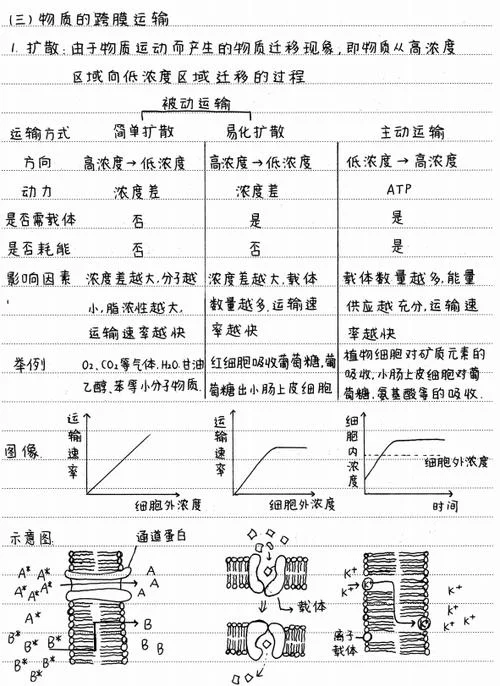 (三)物质的跨膜运输
1. 扩散:由于物质运动而产生的物质迁移现象,即物质从高浓度
区域向低浓度区域迁移的过程
被动运输
运输方式 简单扩散 易化扩散 主动运输
方向 高浓度→低浓度 高浓度→低浓度 低浓度→高浓度
动力 浓度差 浓度差 ATP
是否需载体 否 是 是
是否耗能 否 否 是
影响因素 浓度差越大,分子越 浓度差越大,载体 载体数量越多,能量
小,脂浓性越大, 数量越多,运输速 供应越充分,运输速
运输速率越快 率越快 率越快
举例 O₂、CO₂等气体、H₂O、甘油 红细胞吸收葡萄糖,葡 植物细胞对矿质元素的
乙醇、苯等小分子物质. 萄糖出小肠上皮细胞 吸收,小肠上皮细胞对葡
萄糖,氨基酸等的吸收.
图像
运输速率
细胞外浓度
运输速率
细胞外浓度
细胞内浓度
细胞外浓度
时间
示意图
通道蛋白
A* A* A* A* A* A*
A A
B* B* B* B* B* B*
B B B
载体
K⁺ K⁺ K⁺ K⁺
K⁺ K⁺ K⁺ K⁺ K⁺
离子
载体